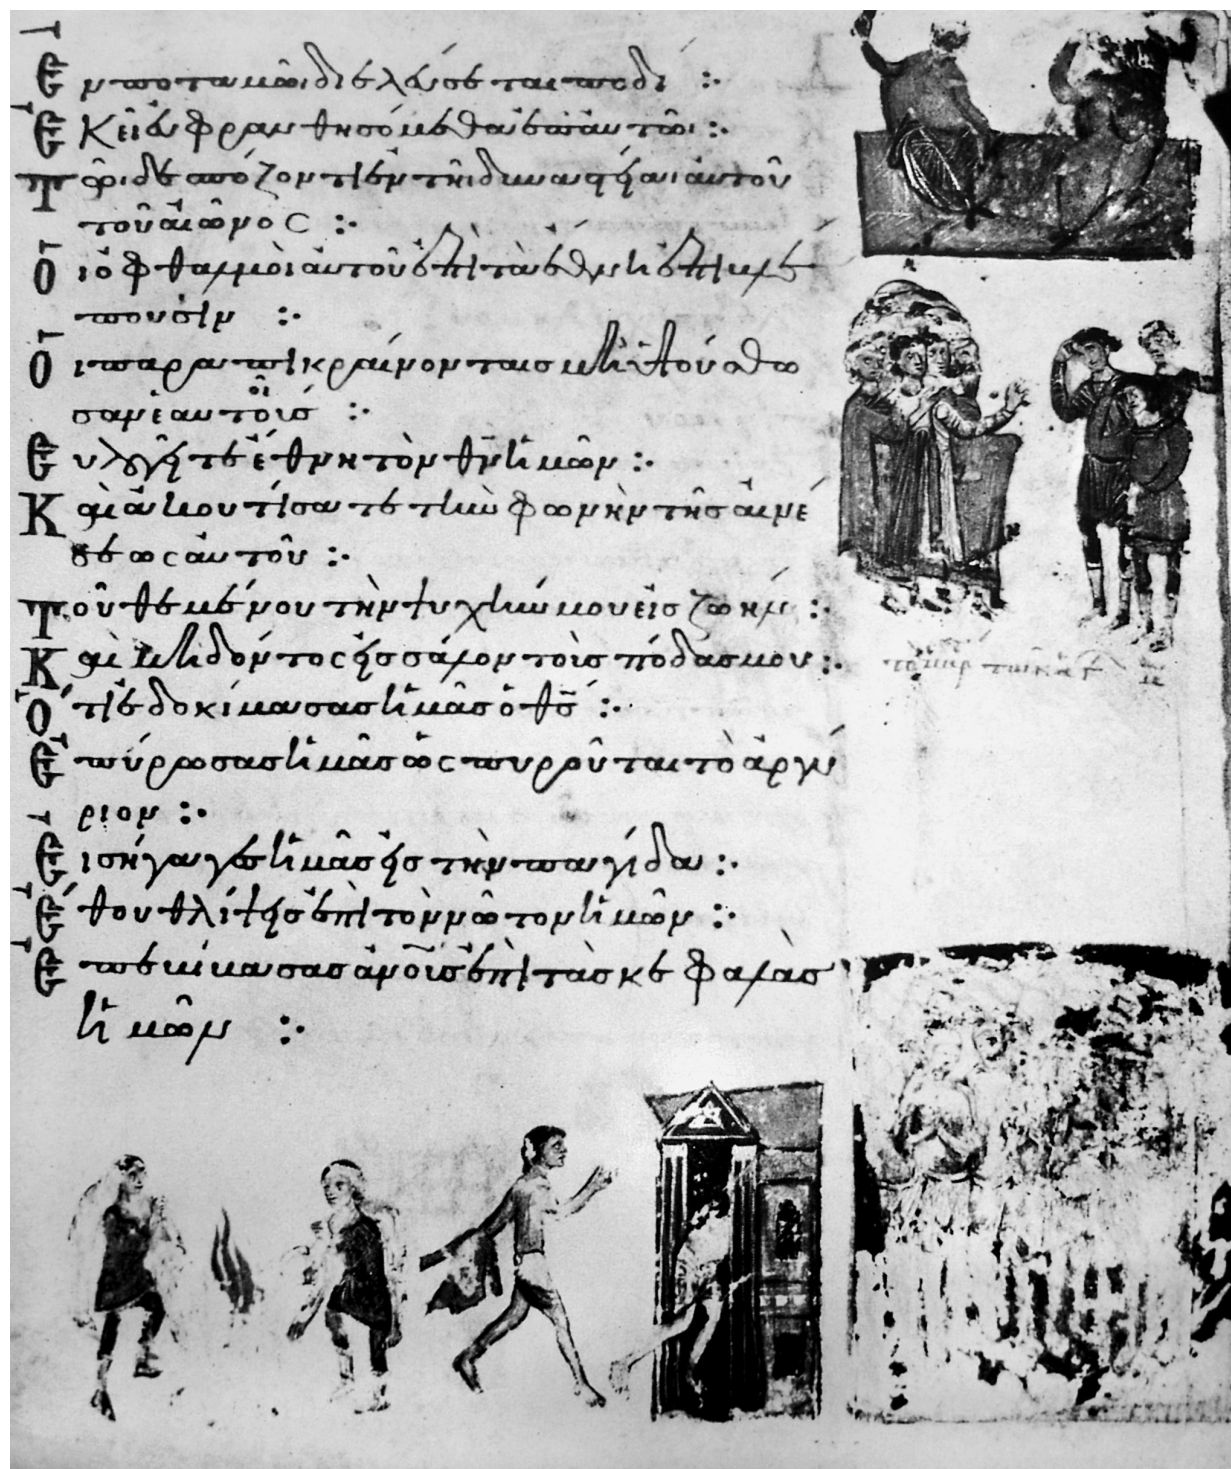 Ἐν ποταμῶι διελεύσεται ποδί :·
Ἐκεῖ εὐφρανθησόμεθα ἐπ αὐτῶι :·
Τῶι δεσπόζοντι ἐν τῆι δυναστείαι αὐτοῦ
τοῦ αἰῶνος :·
Οἱ ὀφθαλμοὶ αὐτοῦ ἐπὶ τὰ ἔθνη ἐπιβλέ
πουσιν :·
Οἱ παραπικραίνοντες μὴ ὑψούσθω
σαν ἑαυτοῖς :·
Εὐλογεῖτε ἔθνη τὸν θν ἡμῶν :·
Καὶ ἀκουτίσατε τὴν φωνὴν τῆς αἰνέ
σεως αὐτοῦ :·
Τοῦ θεμένου τὴν ψυχήν μου εἰς ζωήν :·
Καὶ μὴ δόντος εἰς σάλον τοὺς πόδας μου :·
Ὅτι ἐδοκίμασας ἡμᾶς ὁ θς :·
Ἐπύρωσας ἡμᾶς ὡς πυροῦται τὸ ἀργύ
ριον :·
Εἰσήγαγες ἡμᾶς εἰς τὴν παγίδα :·
Ἔθου θλίψεις ἐπὶ τὸν νῶτον ἡμῶν :·
Ἐπεβίβασας ἀνους ἐπὶ τὰς κεφαλὰς
ἡμῶν :·